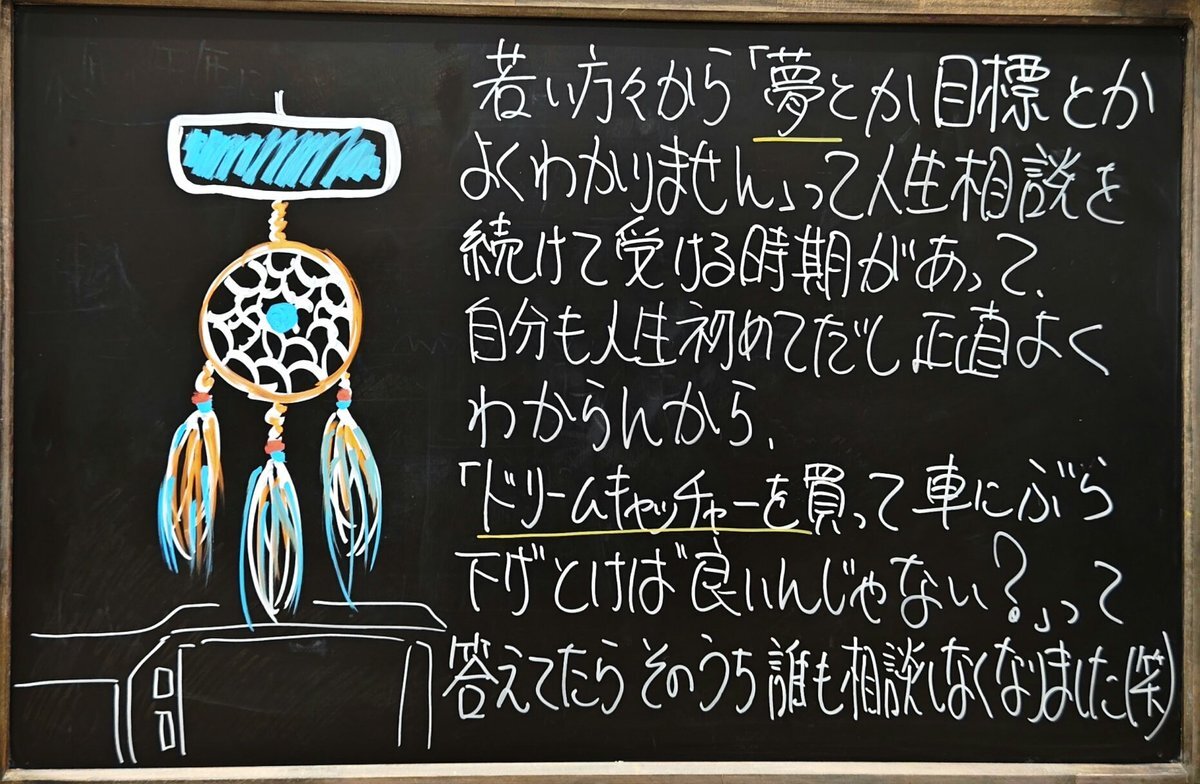 若い方々から「夢とか目標とか
よくわかりません」って人生相談を
続けて受ける時期があって、
自分も人生初めてだし正直よく
わからんから、
「ドリームキャッチャーを買って車にぶら
下げとけば良いんじゃない?」って
答えてたらそのうち誰も相談しなくなりました(笑)